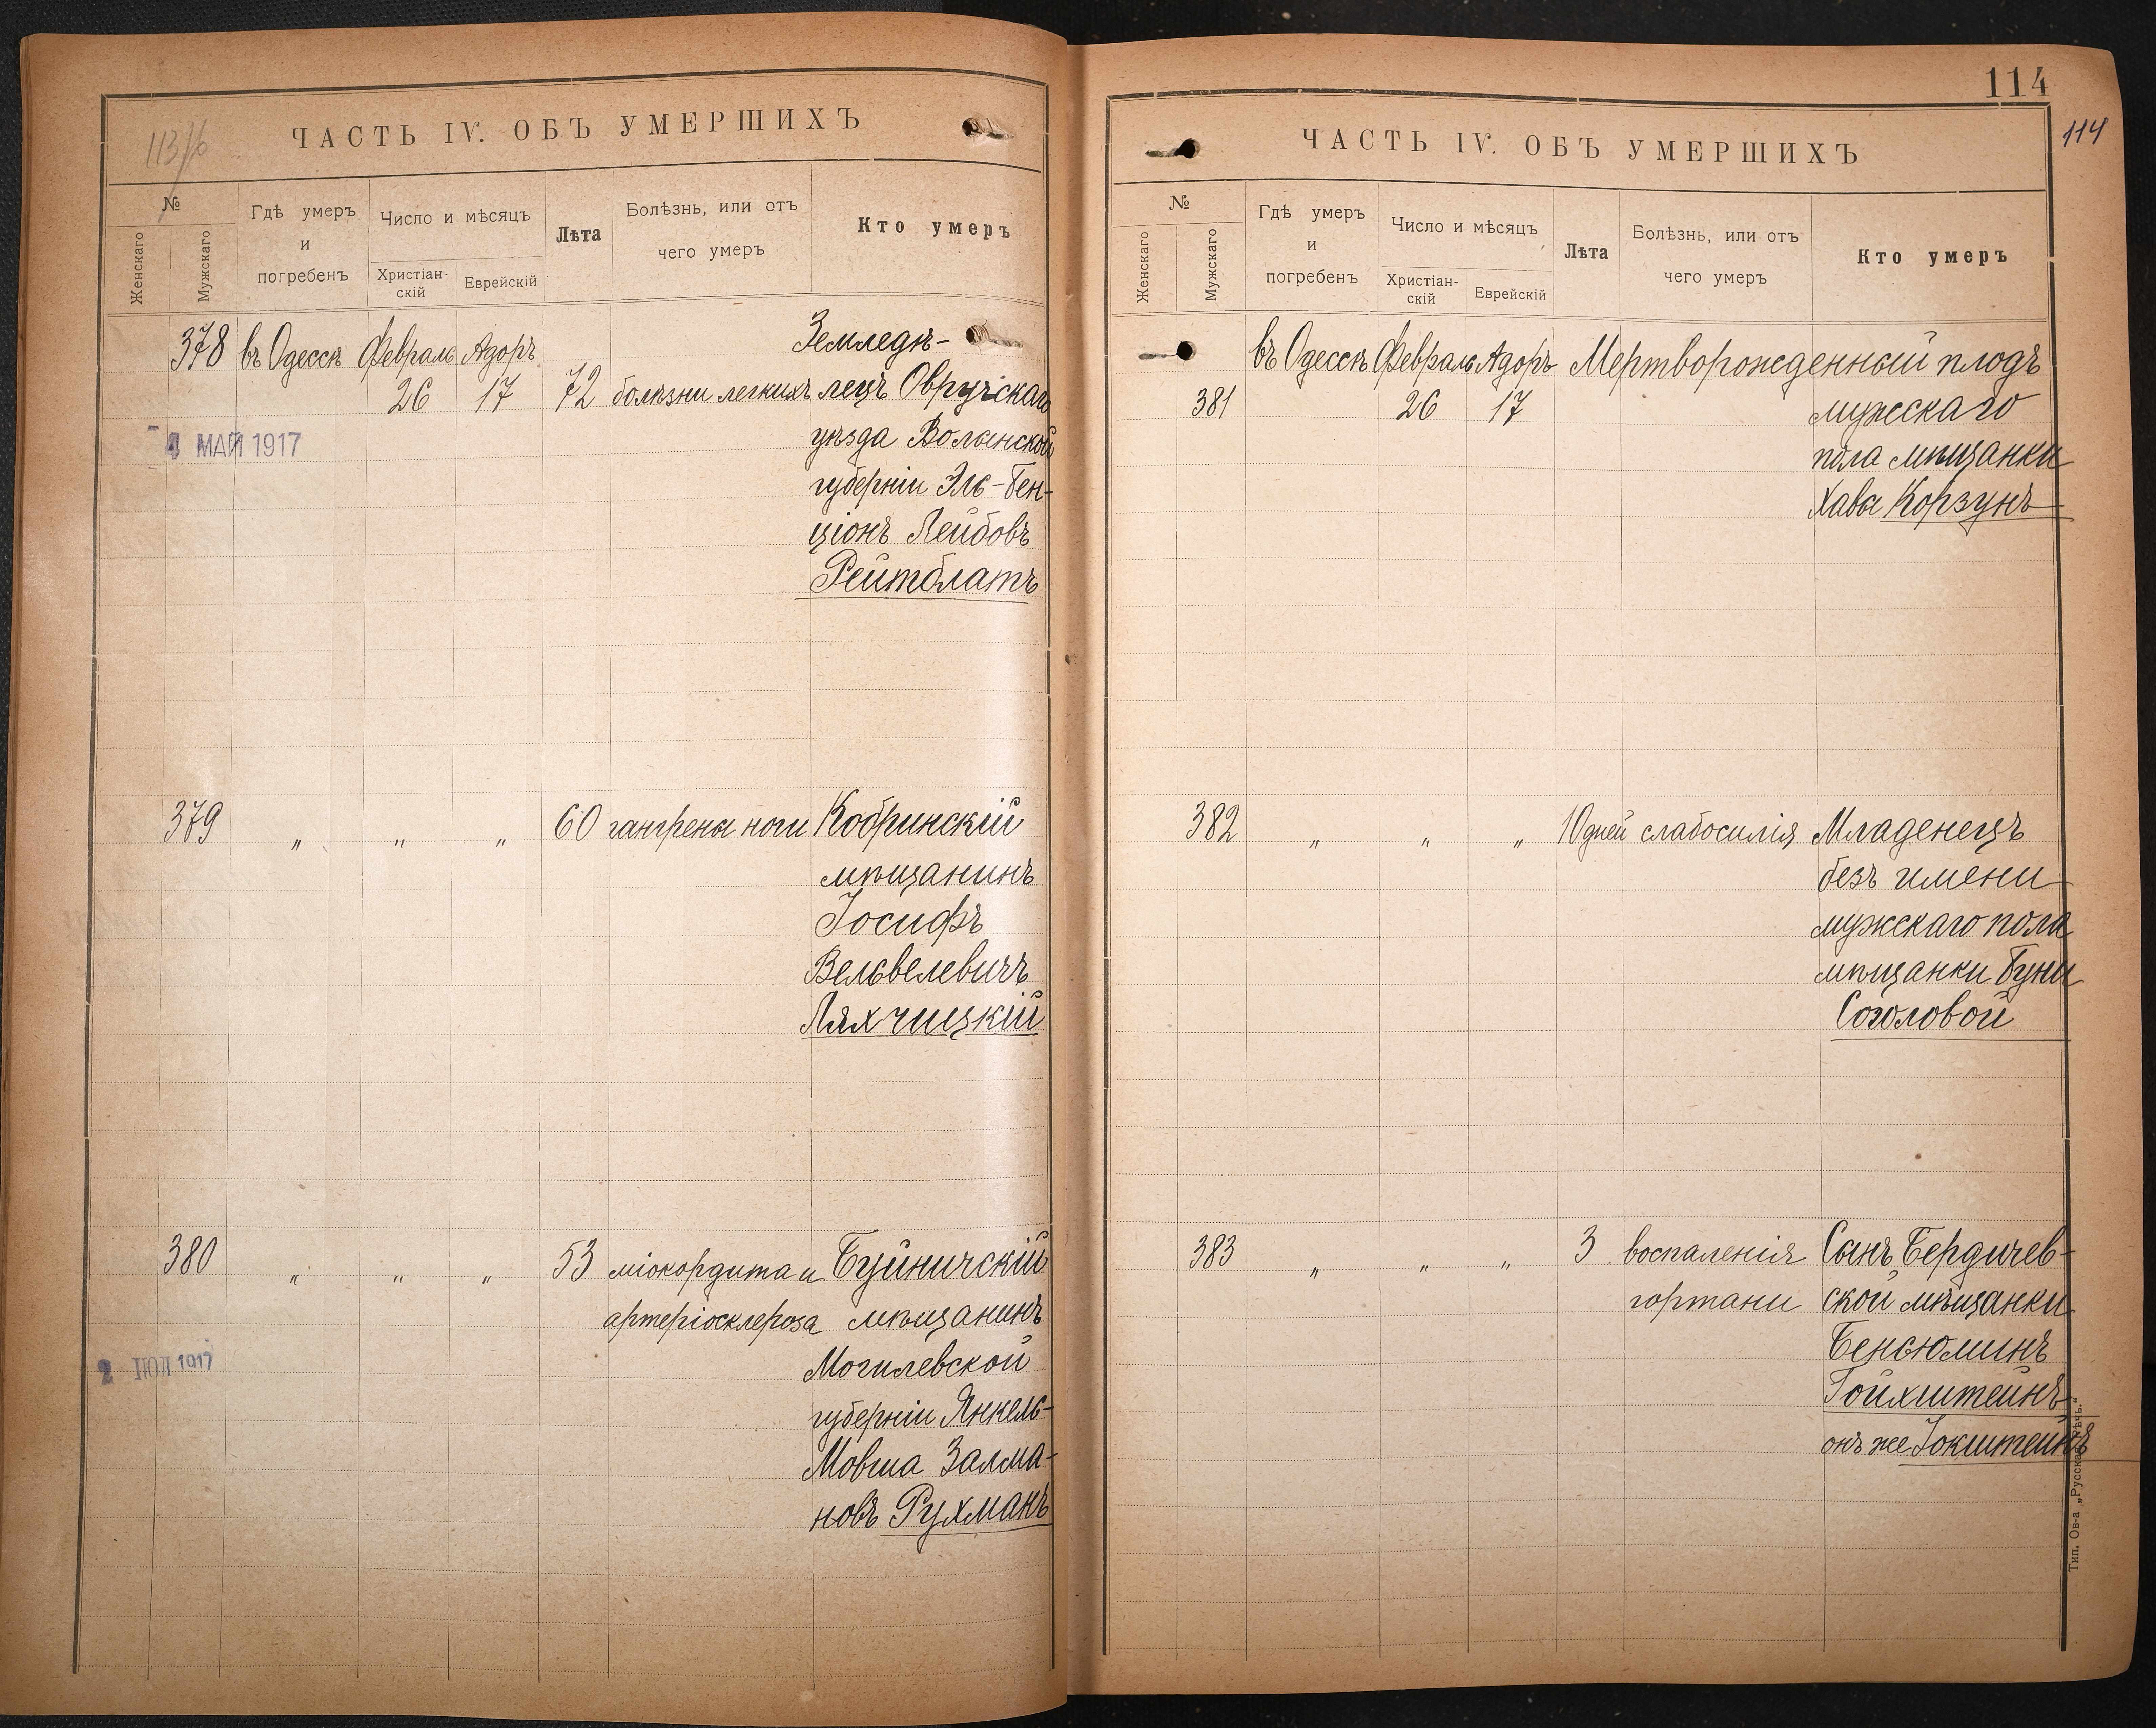 113/б
ЧАСТЬ IV. ОБЪ УМЕРШИХЪ
№
Женскаго
Мужскаго
Гдѣ умеръ
и
погребенъ
Число и мѣсяцъ
Христіан-
скій
Еврейскій
Лѣта
Болѣзнь, или отъ
чего умеръ
Кто умеръ
378 въ Одессѣ Февраль Адоръ Земледѣ-
26 17 72 болѣзни легкихъ лецъ Овручскаго
4 МАЙ 1917
уѣзда Волынской
губерніи Эль-Бен-
ціонъ Лейбовъ
Рейтблатъ
379 „ „ „ 60 гангрены ноги Кобринскій
мѣщанинъ
Іосифъ
Вельвелевичъ
Ляхчицкій
380 „ „ „ 53 міокордита и Буйничскій
артеріосклероза мѣщанинъ
2 ІЮЛ 1917
Могилевской
губерніи Янкель-
Мовша Залма-
новъ Рухманъ
114
114
ЧАСТЬ IV. ОБЪ УМЕРШИХЪ
№
Женскаго
Мужскаго
Гдѣ умеръ
и
погребенъ
Число и мѣсяцъ
Христіан-
скій
Еврейскій
Лѣта
Болѣзнь, или отъ
чего умеръ
Кто умеръ
въ Одессѣ Февраль Адоръ Мертворожденный плодъ
381 26 17 мужескаго
пола мѣщанки
Хавы Корзунъ
382 „ „ „ 10 дней слабосилія Младенецъ
безъ имени
мужскаго пола
мѣщанки Буни
Соголовой
383 „ „ „ 3 воспаленія Сынъ Бердичев-
гортани ской мѣщанки
Бенсюминъ
Гойхштейнъ
онъ же Іокштейнъ
Тип. Ов-а „Русская Рѣчь."